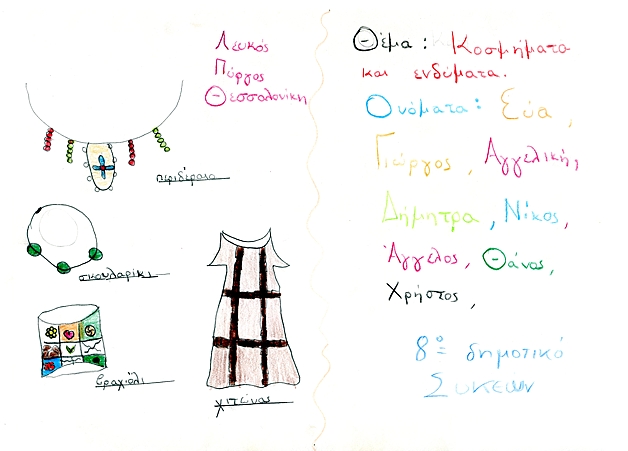 Λευκός
Πύργος
Θεσσαλονίκη
περιδέραιο
σκουλαρίκι
βραχιόλι
χιτώνας
Θέμα: Κοσμήματα
και ενδύματα.
Ονόματα: Εύα,
Γιώργος, Αγγελική,
Δήμητρα, Νίκος,
Άγγελος, Θάνος,
Χρήστος,
8º δημοτικό
Συκεών